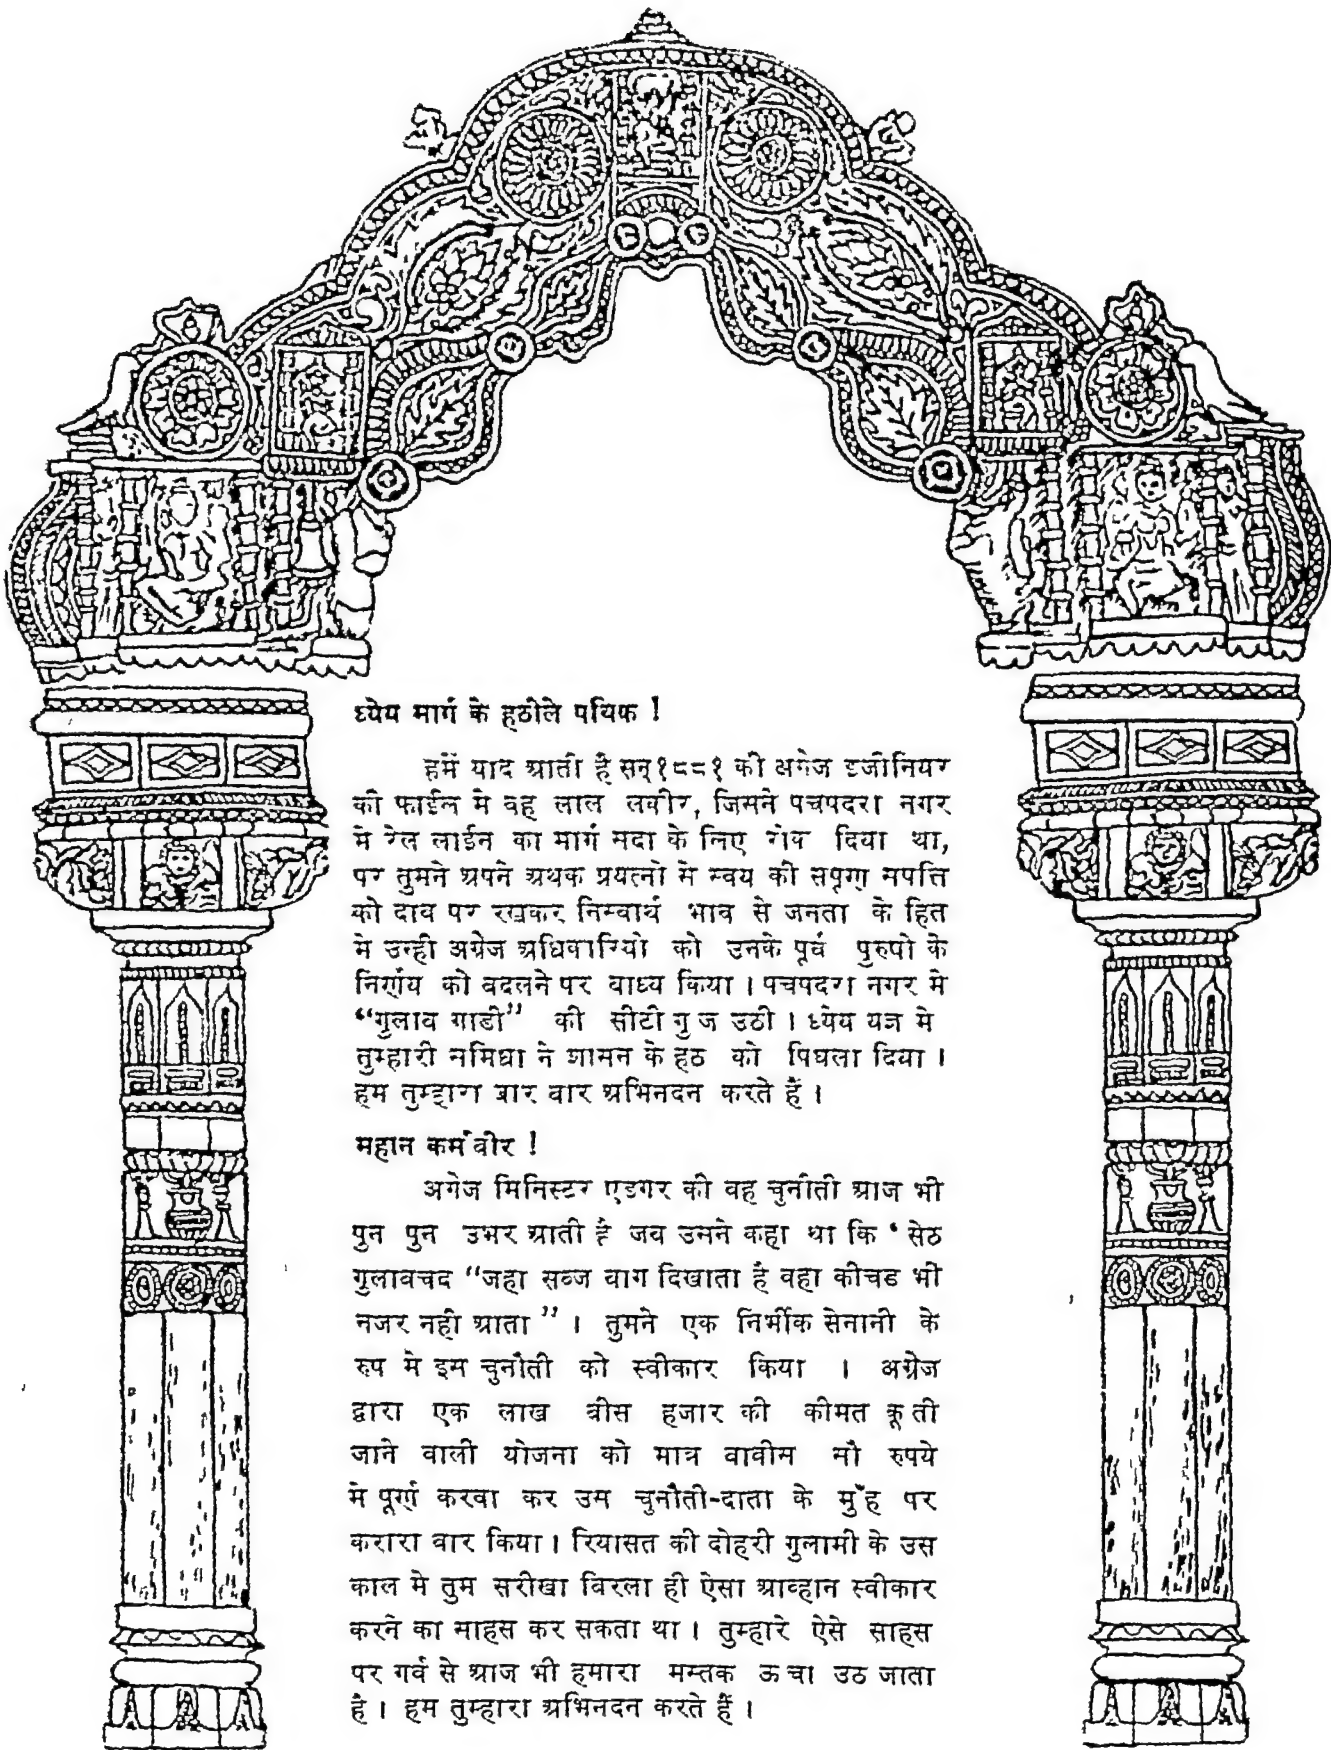 ध्येय मार्ग के हठीले पथिक !
हमें याद आती है सन् १८८१ की अग्रेज इजीनियर
की फाईल मे वह लाल लकीर, जिसने पचपदरा नगर
मे रेल लाईन का मार्ग सदा के लिए रोक दिया था,
पर तुमने अपने अथक प्रयत्नो से स्वय की सपूर्ण सपत्ति
को दाव पर रखकर निस्वार्थ भाव से जनता के हित
मे उन्ही अग्रेज अधिकारियो को उनके पूर्व पुरुषो के
निर्णय को बदलने पर बाध्य किया । पचपदरा नगर मे
“गुलाब गाडी” की सीटी गु ज उठी । ध्येय यज्ञ मे
तुम्हारी समिधा ने शासन के हठ को पिघला दिया ।
हम तुम्हारा बार बार अभिनदन करते हैं ।
महान कर्मवीर !
अग्रेज मिनिस्टर एडगर की वह चुनौती आज भी
पुन पुन उभर आती है जब उसने कहा था कि ‘ सेठ
गुलाबचद “जहा सब्ज बाग दिखाता है वहा कीचड भी
नजर नही आता ” । तुमने एक निर्भीक सेनानी के
रुप मे इस चुनौती को स्वीकार किया । अग्रेज
द्वारा एक लाख बीस हजार की कीमत कू ती
जाने वाली योजना को मात्र बावीस सौ रुपये
मे पूर्ण करवा कर उस चुनौती-दाता के मुँह पर
करारा वार किया । रियासत की दोहरी गुलामी के उस
काल मे तुम सरीखा बिरला ही ऐसा आव्हान स्वीकार
करने का साहस कर सकता था । तुम्हारे ऐसे साहस
पर गर्व से आज भी हमारा मस्तक ऊ चा उठ जाता
है । हम तुम्हारा अभिनदन करते हैं ।